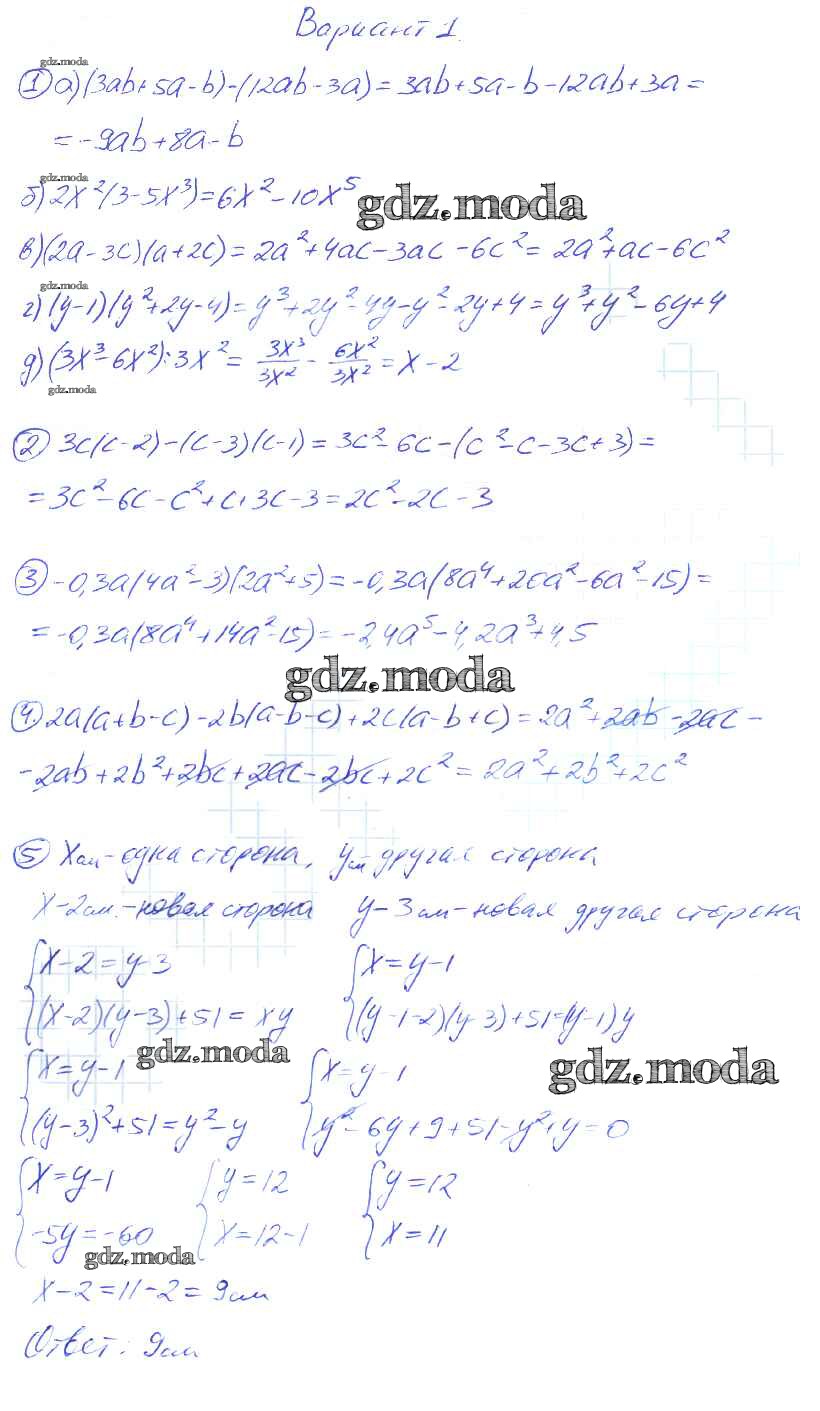 Вариант 1.
gdz.moda
① а) (3ab+5a-b)-(12ab-3a)=3ab+5a-b-12ab+3a=
=-9ab+8a-b
gdz.moda
б) 2x²(3-5x³)=6x²-10x⁵
gdz.moda
в) (2a-3c)(a+2c)=2a²+4ac-3ac-6c²=2a²+ac-6c²
gdz.moda
г) (y-1)(y²+2y-4)=y³+2y²-4y-y²-2y+4=y³+y²-6y+4
д) (3x³-6x²):3x²= 3x³/3x² - 6x²/3x² =x-2
gdz.moda
② 3c(c-2)-(c-3)(c-1)=3c²-6c-(c²-c-3c+3)=
=3c²-6c-c²+c+3c-3=2c²-2c-3
③ -0,3a(4a²-3)(2a²+5)=-0,3a(8a⁴+20a²-6a²-15)=
=-0,3a(8a⁴+14a²-15)=-2,4a⁵-4,2a³+4,5
gdz.moda
④ 2a(a+b-c)-2b(a-b-c)+2c(a-b+c)=2a²+2ab-2ac-
-2ab+2b²+2bc+2ac-2bc+2c²=2a²+2b²+2c²
⑤ x см-одна сторона, y см-другая сторона
x-2см.-новая сторона y-3см-новая другая сторона
{x-2=y-3 {x=y-1
{(x-2)(y-3)+51=xy {(y-1-2)(y-3)+51=(y-1)y
gdz.moda
gdz.moda
{x=y-1 {x=y-1
{(y-3)²+51=y²-y {y²-6y+9+51-y²+y=0
{x=y-1 {y=12 {y=12
{-5y=-60 {x=12-1 {x=11
gdz.moda
x-2=11-2=9см
Ответ: 9см